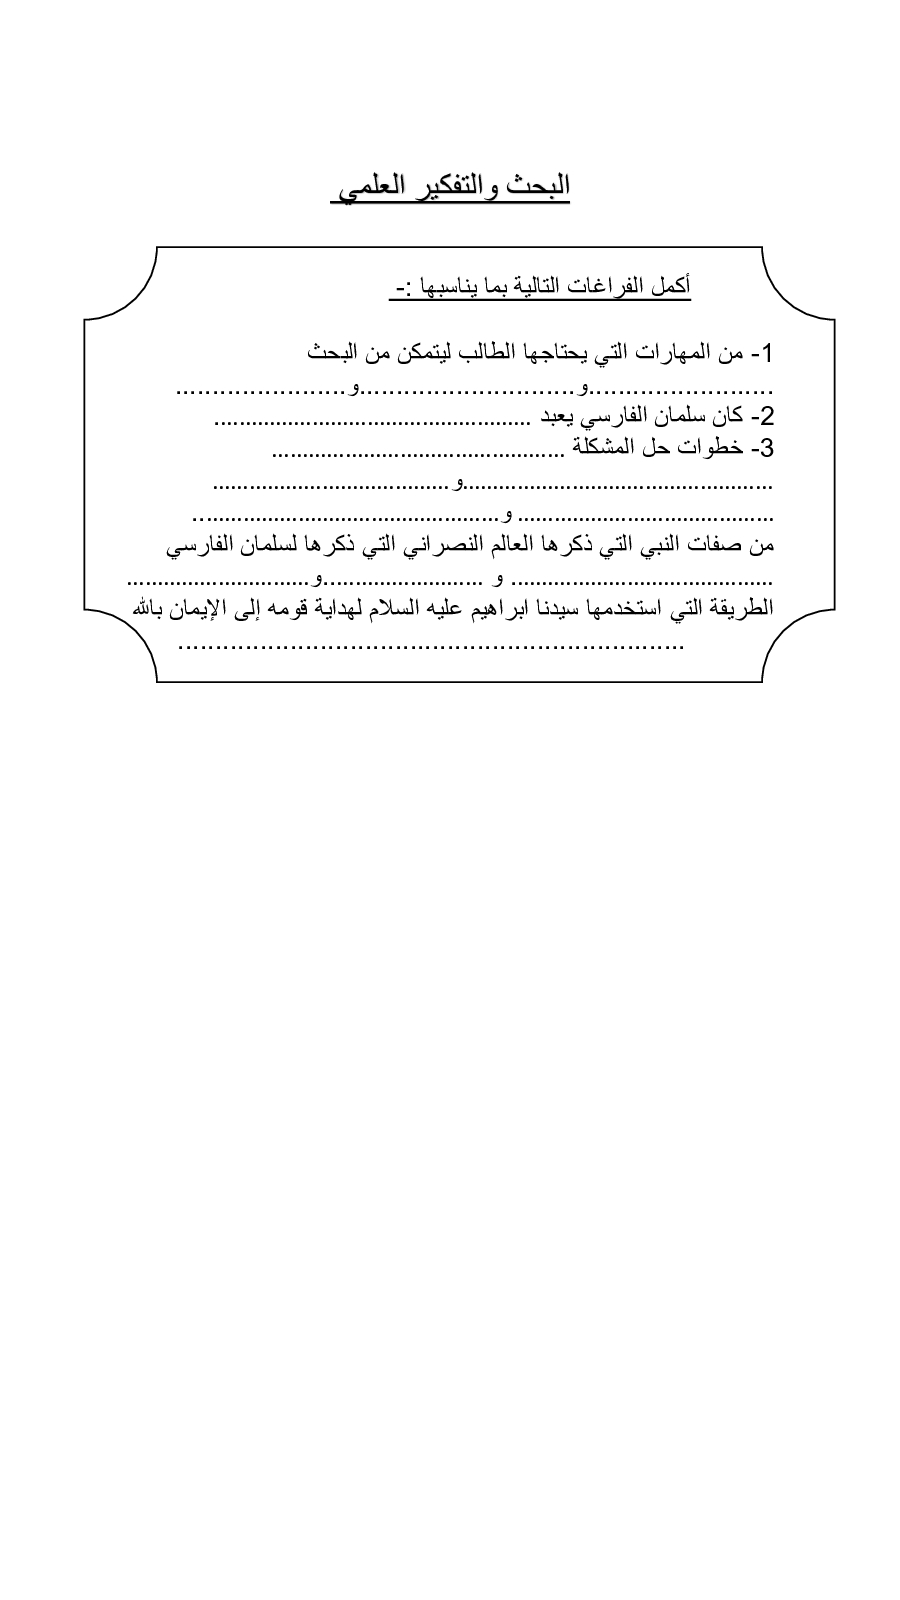 البحث والتفكير العلمي
أكمل الفراغات التالية بما يناسبها :-
1- من المهارات التي يحتاجها الطالب ليتمكن من البحث
.........................و.............................و.......................
2- كان سلمان الفارسي يعبد ....................................................
3- خطوات حل المشكلة ................................................
...................................................و.......................................
.......................................... و..................................................
من صفات النبي التي ذكرها العالم النصراني التي ذكرها لسلمان الفارسي
........................................... و ..........................و..............................
الطريقة التي استخدمها سيدنا ابراهيم عليه السلام لهداية قومه إلى الإيمان بالله
....................................................................